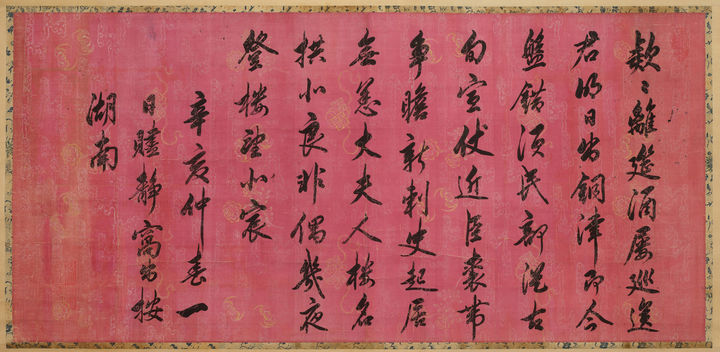 款〻離筵酒屢巡送
君明日出銅津即今
盤錯須民部從古
旬宣仗近臣裘帶
爭瞻新刺史起居
無恙大夫人樓名
拱北良非偶幾夜
登樓望北宸
辛亥仲春一
日贐靜窩出按
湖南